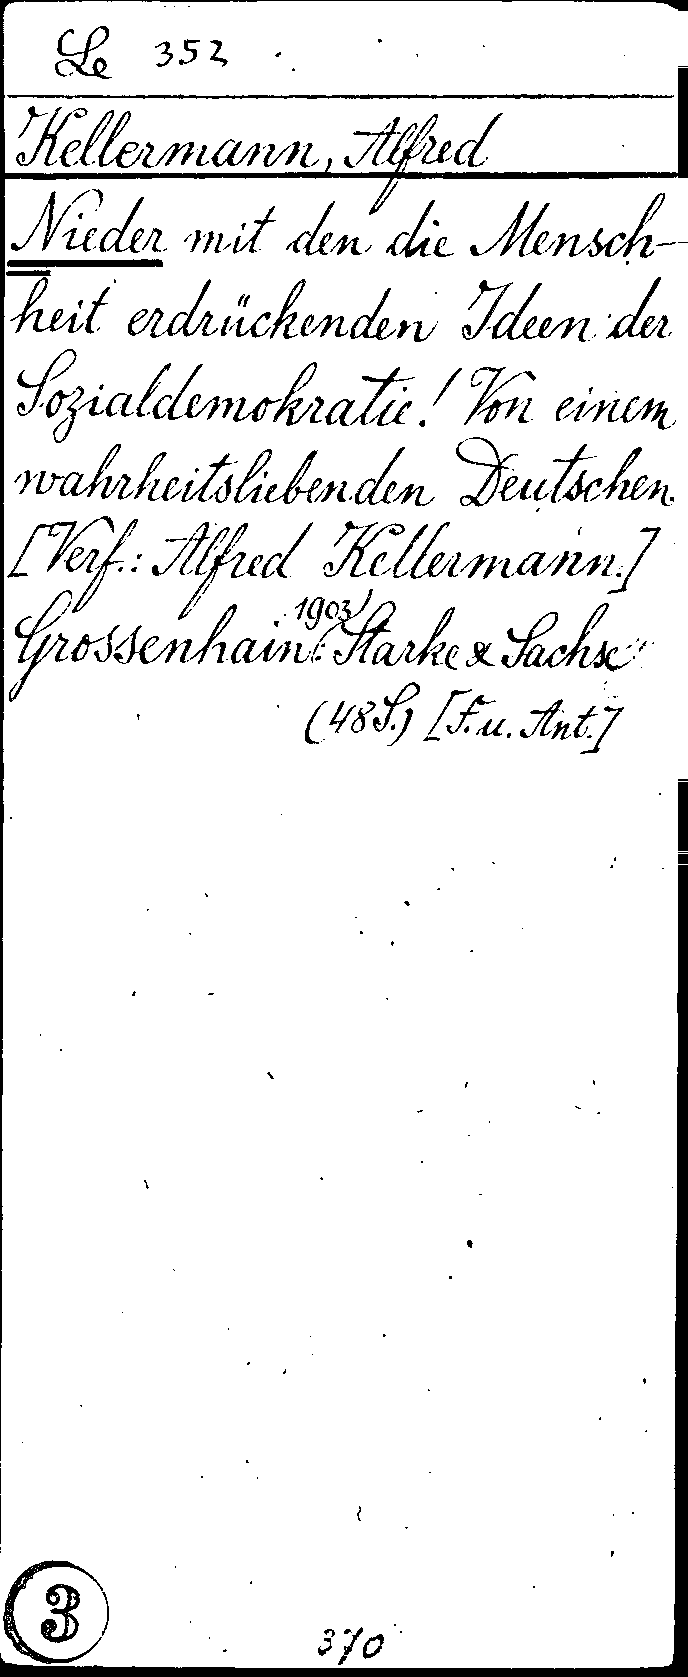 Le 352
Kellermann, Alfred
Nieder mit den die Mensch-
heit erdrückenden Ideen der
Sozialdemokratie! Von einem
wahrheitsliebenden Deutschen.
[Verf.: Alfred Kellermann.]
1903
Grossenhain: Starke & Sachse
(48 S.) [F. u. Ant.]
3
370